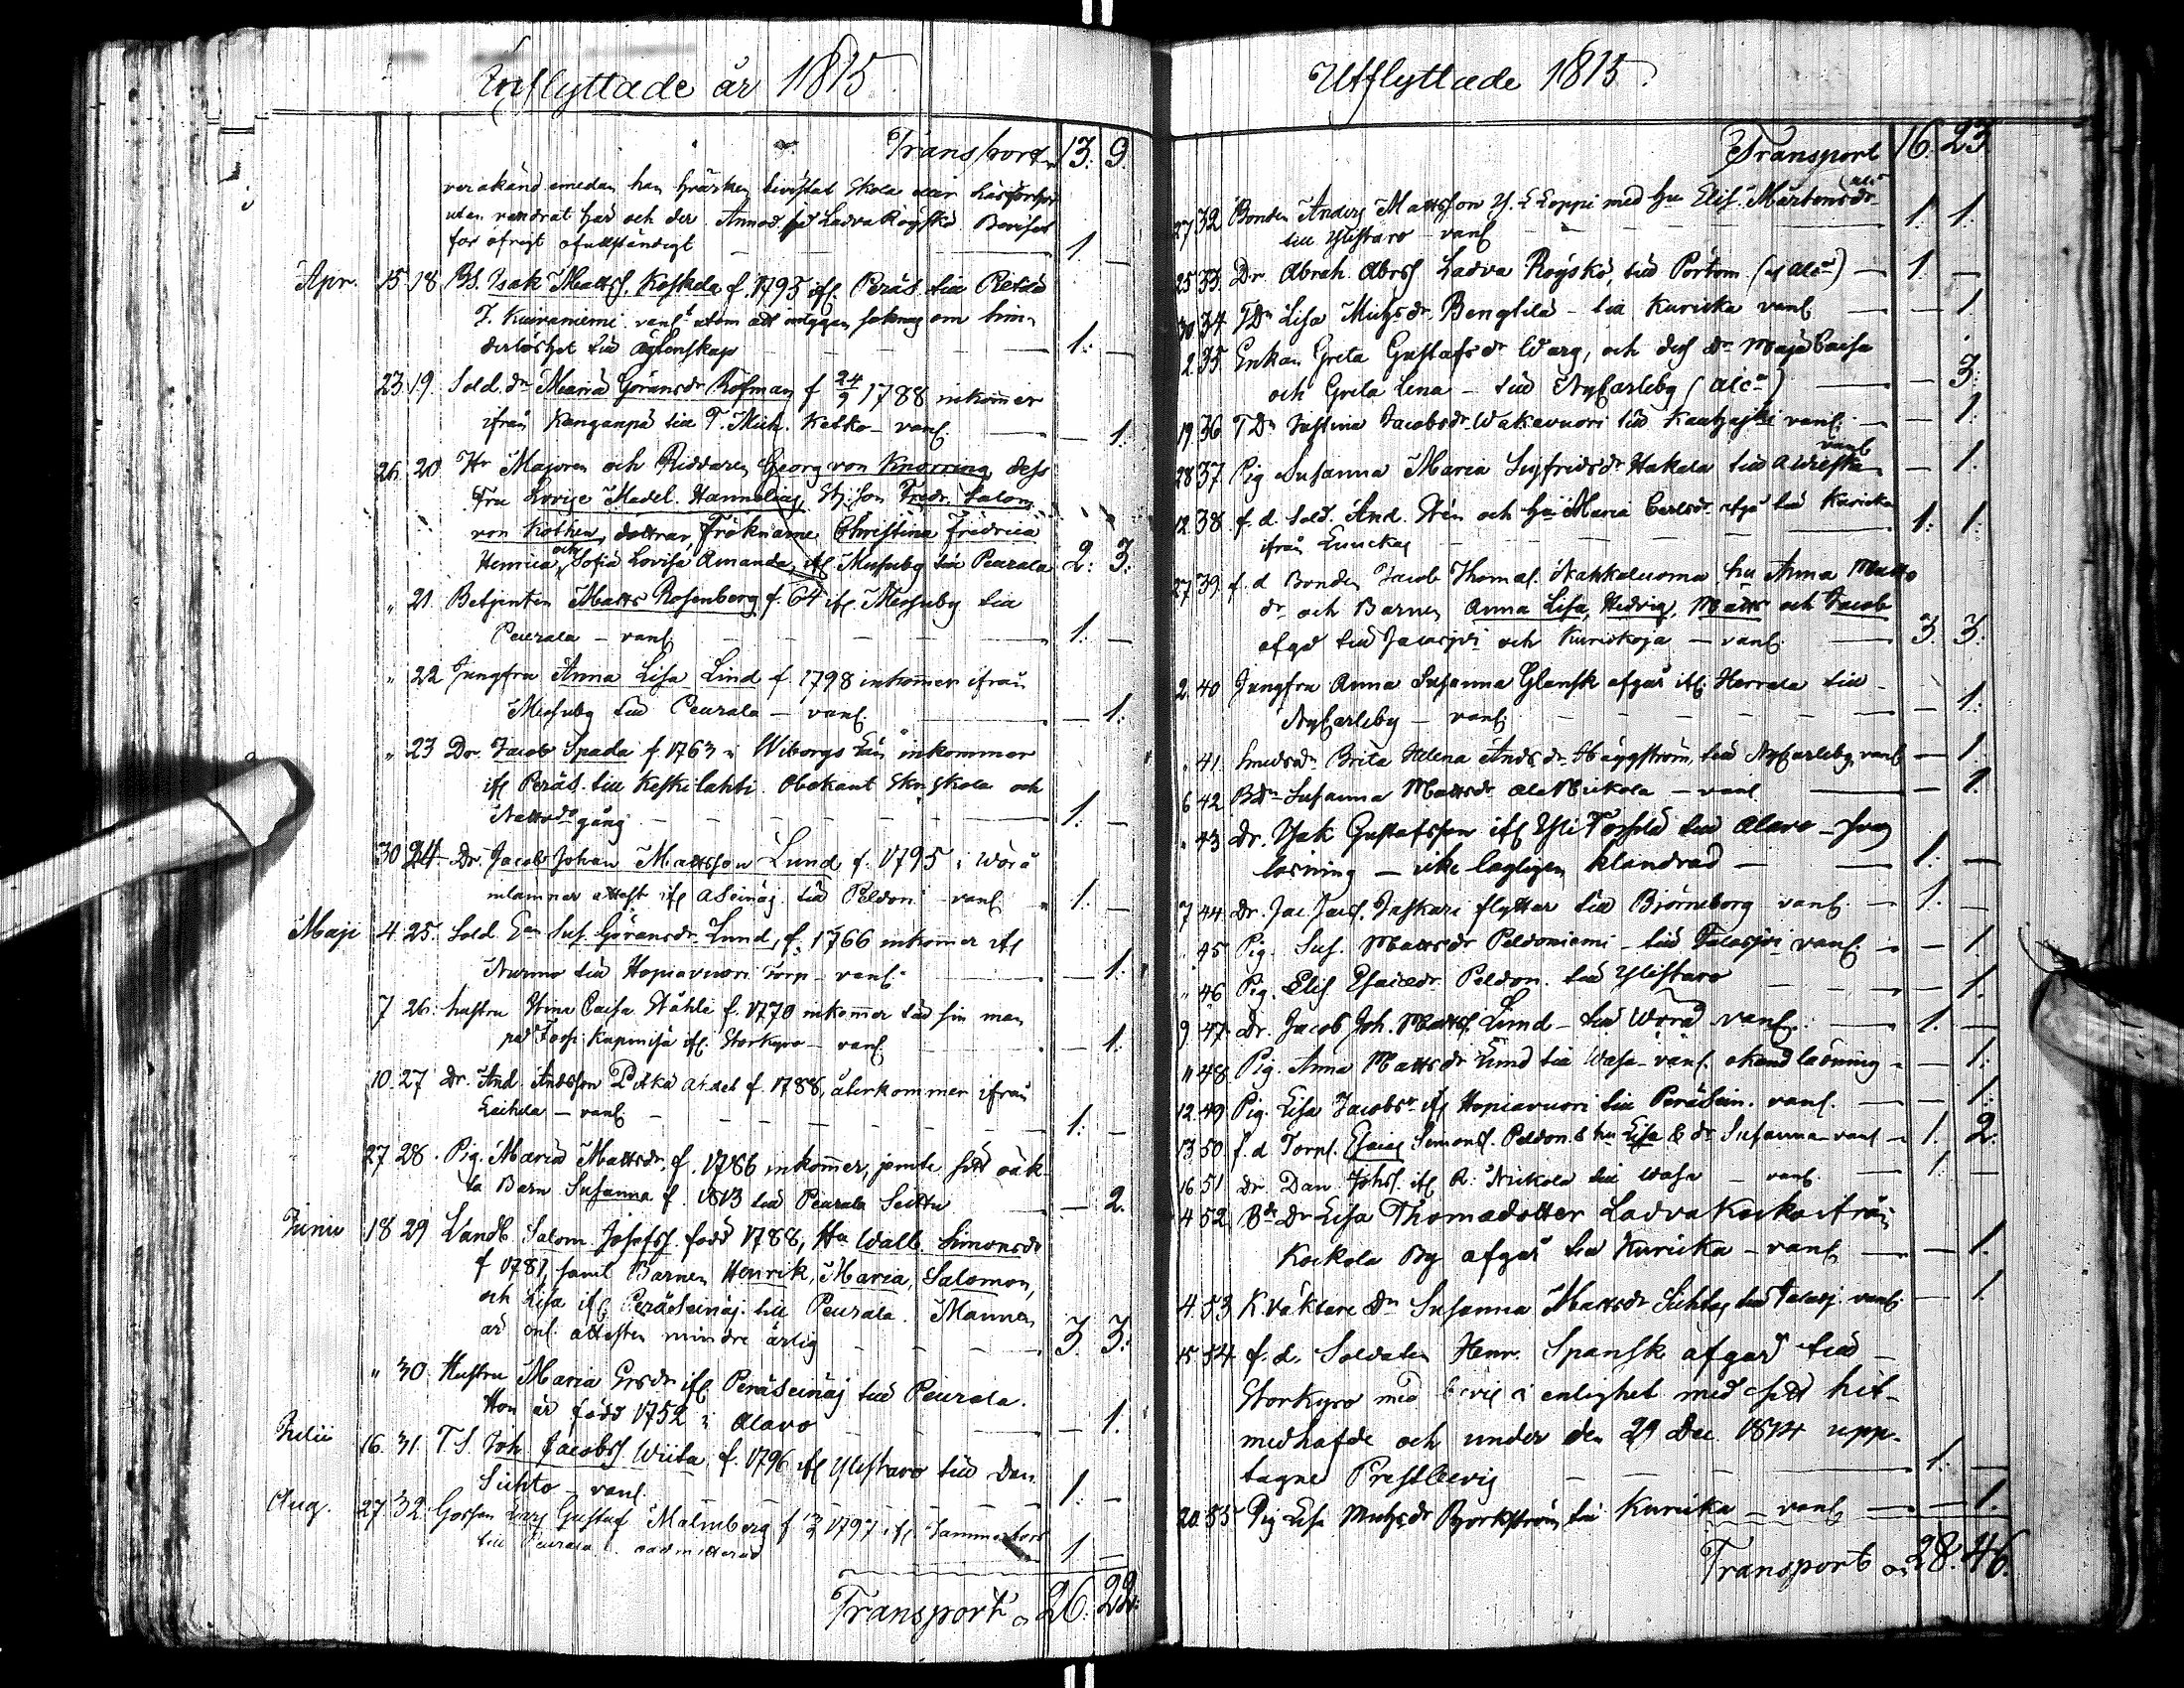 Inflyttade år 1815
Transport 13. 9.
emedan han skola
utan vandrat här och der. Bevisat
för öfrigt ofullständigt — 1.
Apr. 15. 18. Bs. Isak Matts. Koskela f. 1795 ifr. Peräs. till
J. Kuivaniemi vanl. utom att intyg om hin-
derlöshet till äktenskap — 1. —
23. 19. Sold. dr Maria Göransdr Rofman f. 24/2 1788 inkommer
ifrån Kanganpä till T. Mich. Ketko — vanl. — 1.
26. 20. Hr Majoren och Riddaren Georg von Knorring dess
Fru Lovise Madel. Stj. son Fredr. Salom.
von Kothen, döttrar Fröknarne Christina Fredrica
Henrica och Sofia Lovisa Amanda, ifr. Mussuby till Peurala 2. 3.
" 21. Betjenten Matts Rosenberg f. 64 ifr. Mussuby till
Peurala — vanl. — 1. —
" 22 Jungfru Anna Lisa Lind f. 1798 inkommer ifrån
Mussuby till Peurala — vanl. — 1.
" 23 Dr. Jacob Spada f. 1763 i Wiborgs Län inkommer
ifr. Peräs. till Keskilahti. Obekant skola och
Nattvdsgång — 1. —
30 24 Dr. Jacob Johan Mattsson Lund f. 1795 i Wörå
inlämnar attest ifr. Aseinäj. till Peldon — vanl. 1. —
Maji 4. 25. Sold. En Sus. Göransdr Lund, f. 1766 inkommer ifr.
Nurmo till Hopiavuori Torp — vanl. — 1.
7 26. hustru Stina Caisa Ståhle f. 1770 inkommer till sin man
på Torp: Kapinisä ifr. Storkyro — vanl. — 1.
10. 27 Dr. And. Andsson f. 1788, återkommer ifrån
Laihela — vanl. — 1. —
27 28. Pig. Maria Mattsdr, f. 1786 inkommer, jemte sitt oäk-
ta Barn Susanna f. 1813 till Peurala — 2.
Junii 18 29 Landb. Salom. Josefs. född 1788, Hu Walb. Simonsdr
f 1781, samt Barnen Henrik, Maria, Salomon,
och Lisa ifr. Peräseinäj. till Peurala. Mannen
är enl. attesten mindre ärlig — 3. 3.
" 30 Hustru Maria Ersdr ifr. Peräseinäj till Peurala.
Hon är född 1752 i Alavo — 1.
Julii 16. 31. T. S. Joh. Jacobs. Wiita f. 1796 ifr. Ylistaro till Dan.
Sihto — vanl. — 1. —
Aug. 27. 32. Gossen Lars Gustaf Malmberg f. 1797 ifr. Tammerfors
till Peurala — 1 —
Transport 26. 22.
Utflyttade 1815.
Transport 16. 23.
27 32 Bonden Anders Mattsson Y. Loppi med hu Elis. Mårtensdr
till Ylistaro — vanl. — 1. 1.
25 33. Dr. Abrah. Abrs. Ladva Röyskö, till Pörtom — 1. —
30. 34. TDr Lisa Michsdr Bengtilä — till Kuricka vanl. — 1.
2. 35. Enkan Greta Gustafsdr Warg, och dess dr Maja Caisa
och Greta Lena — till NyCarleby — 3.
19. 36 TDr Justina Jacobsdr Wakavuori till Kauhajoki vanl. — 1.
28 37. Pig Susanna Maria Sigfridsdr Hakala till vanl. — 1.
12. 38. f. d. Sold. And. och hu Maria Carlsdr afgå till Kuricka
ifrån — 1. 1.
27. 39. f. d Bonden Jacob Thomas. Nahkaluoma, hu Anna Matts-
dr och Barnen Anna Lisa, Hedvig, Matts och Jacob
afgå till Jalasjvi och Kurickoja — vanl. — 3. 3.
2. 40 Jungfru Anna Susanna Glansk afgår ifr. Herrala till
NyCarleby — vanl. — 1.
" 41. Smedsdr Brita Helena Andsdr Häggström, till NyCarleby vanl. — 1.
6 42. BDr Susanna Mattsdr Ala Nickola — vanl. — 1.
" 43 Dr. Isak Gustafsson ifr. Yli Torppa till Alavo — svag
läsning — icke lagligen klandrad — 1. —
7 44. Dr. Jac. Jacs. Jaskari flyttar till Björneborg vanl. — 1. —
" 45 Pig. Sus. Mattsdr Peldoniemi — till Jalasjvi vanl. — 1.
" 46 Pig. Elis. Esaiædr Peldon. till Ylistaro — 1.
9 47 Dr. Jacob Joh. Matts. Lund — till Wörå vanl. — 1. —
11 48. Pig. Anna Mattsdr Lund till Wasa — vanl. okänd läsning — 1.
12. 49. Pig. Lisa Jacobsdr ifr. Hopiavuori till Peräsein. vanl. — 1.
13 50. f. d Torp. Esaias Simons. Peldon. & hu Lisa & dr Susanna vanl — 1. 2.
16 51 Dr Dan. Johs. ifr. A. Nickola till Wasa — vanl. — 1. —
4 52. Bde Dr Lisa Thomadotter Ladva Koskoi från
Kockola By afgår till Kuricka — vanl. — 1.
4. 53 K. väktare Dr Susanna Mattsdr Sihto, till Jalasj. vanl. — 1.
15. 54 f. d. Soldaten Henr. Spansk afgår till —
Storkyro med bevis i enlighet med sitt hit-
medhafde och under den 29 Dec. 1814 upp-
tagne Prestbevis — 1. —
20. 55 Pig Lisa Michsdr Björkström till Kuricka — vanl. — 1.
Transport 28. 46.